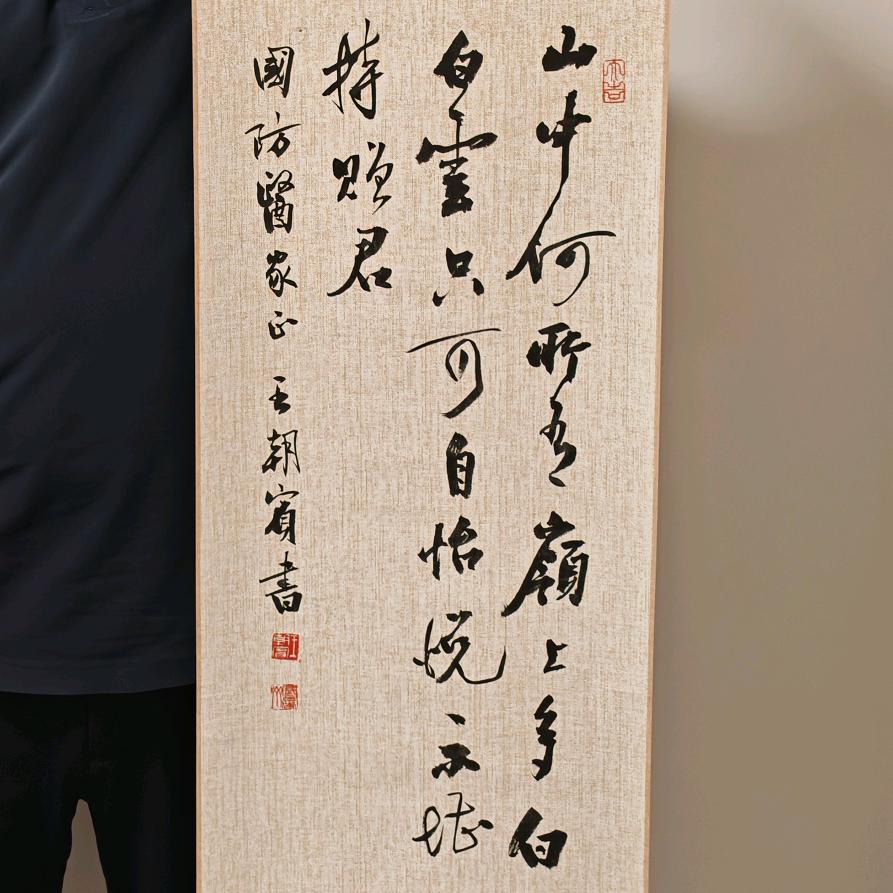 大吉
山中何所有嶺上多白
白雲只可自怡悅不堪
持贈君
國防醫家正 王朝賓書